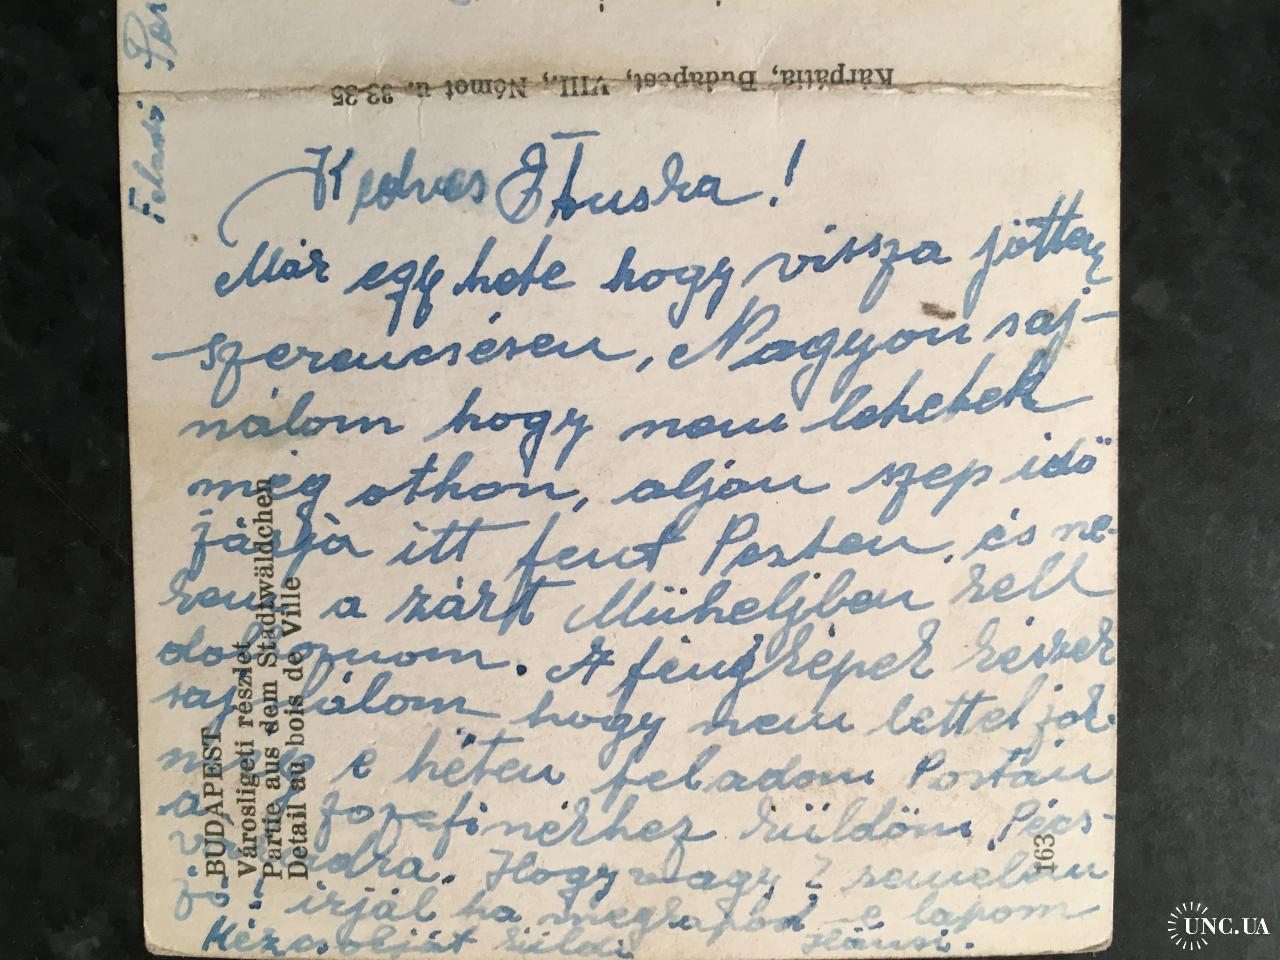 Feladó
Kárpátia, Budapest, VIII., Német u. 33-35
Kedves Ituska!
Már egy hete hogy vissza jöttem
szerencsésen, Nagyon saj-
nálom hogy nem lehetek
még othon, aljan szep idö
járja itt fent Pesten, és ne-
kem a zárt Müheljben kell
dolgoznom. A fényképek készek
sajnálom hogy nem lettel jok
még e héten feladom Postán
a Jozefinékhez küldöm Pécs-
váradra. Hogy vagy? remélem
jól irjál ha megkapod e lapom
Kézcsokját küldi Hánsi.
BUDAPEST
Városligeti részlet
Partie aus dem Stadtwäldchen
Detail au bois de Ville
163
UNC.UA